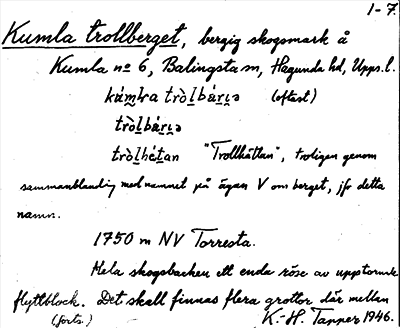 1-7.
Kumla trollberget, bergig skogsmark å
Kumla no 6, Balingsta sn, Hagunda hd, Upps. l.
(oftast)
"Trollhättan", troligen genom
sammanblandning med namnet på ägan V om berget, jfr detta
namn.
1750 m NV Torresta.
Hela skogsbacken ett enda röse av uppstormade
flyttblock. Det skall finnas flera grottor där mellan
(forts.) K.-H. Tapper 1946.